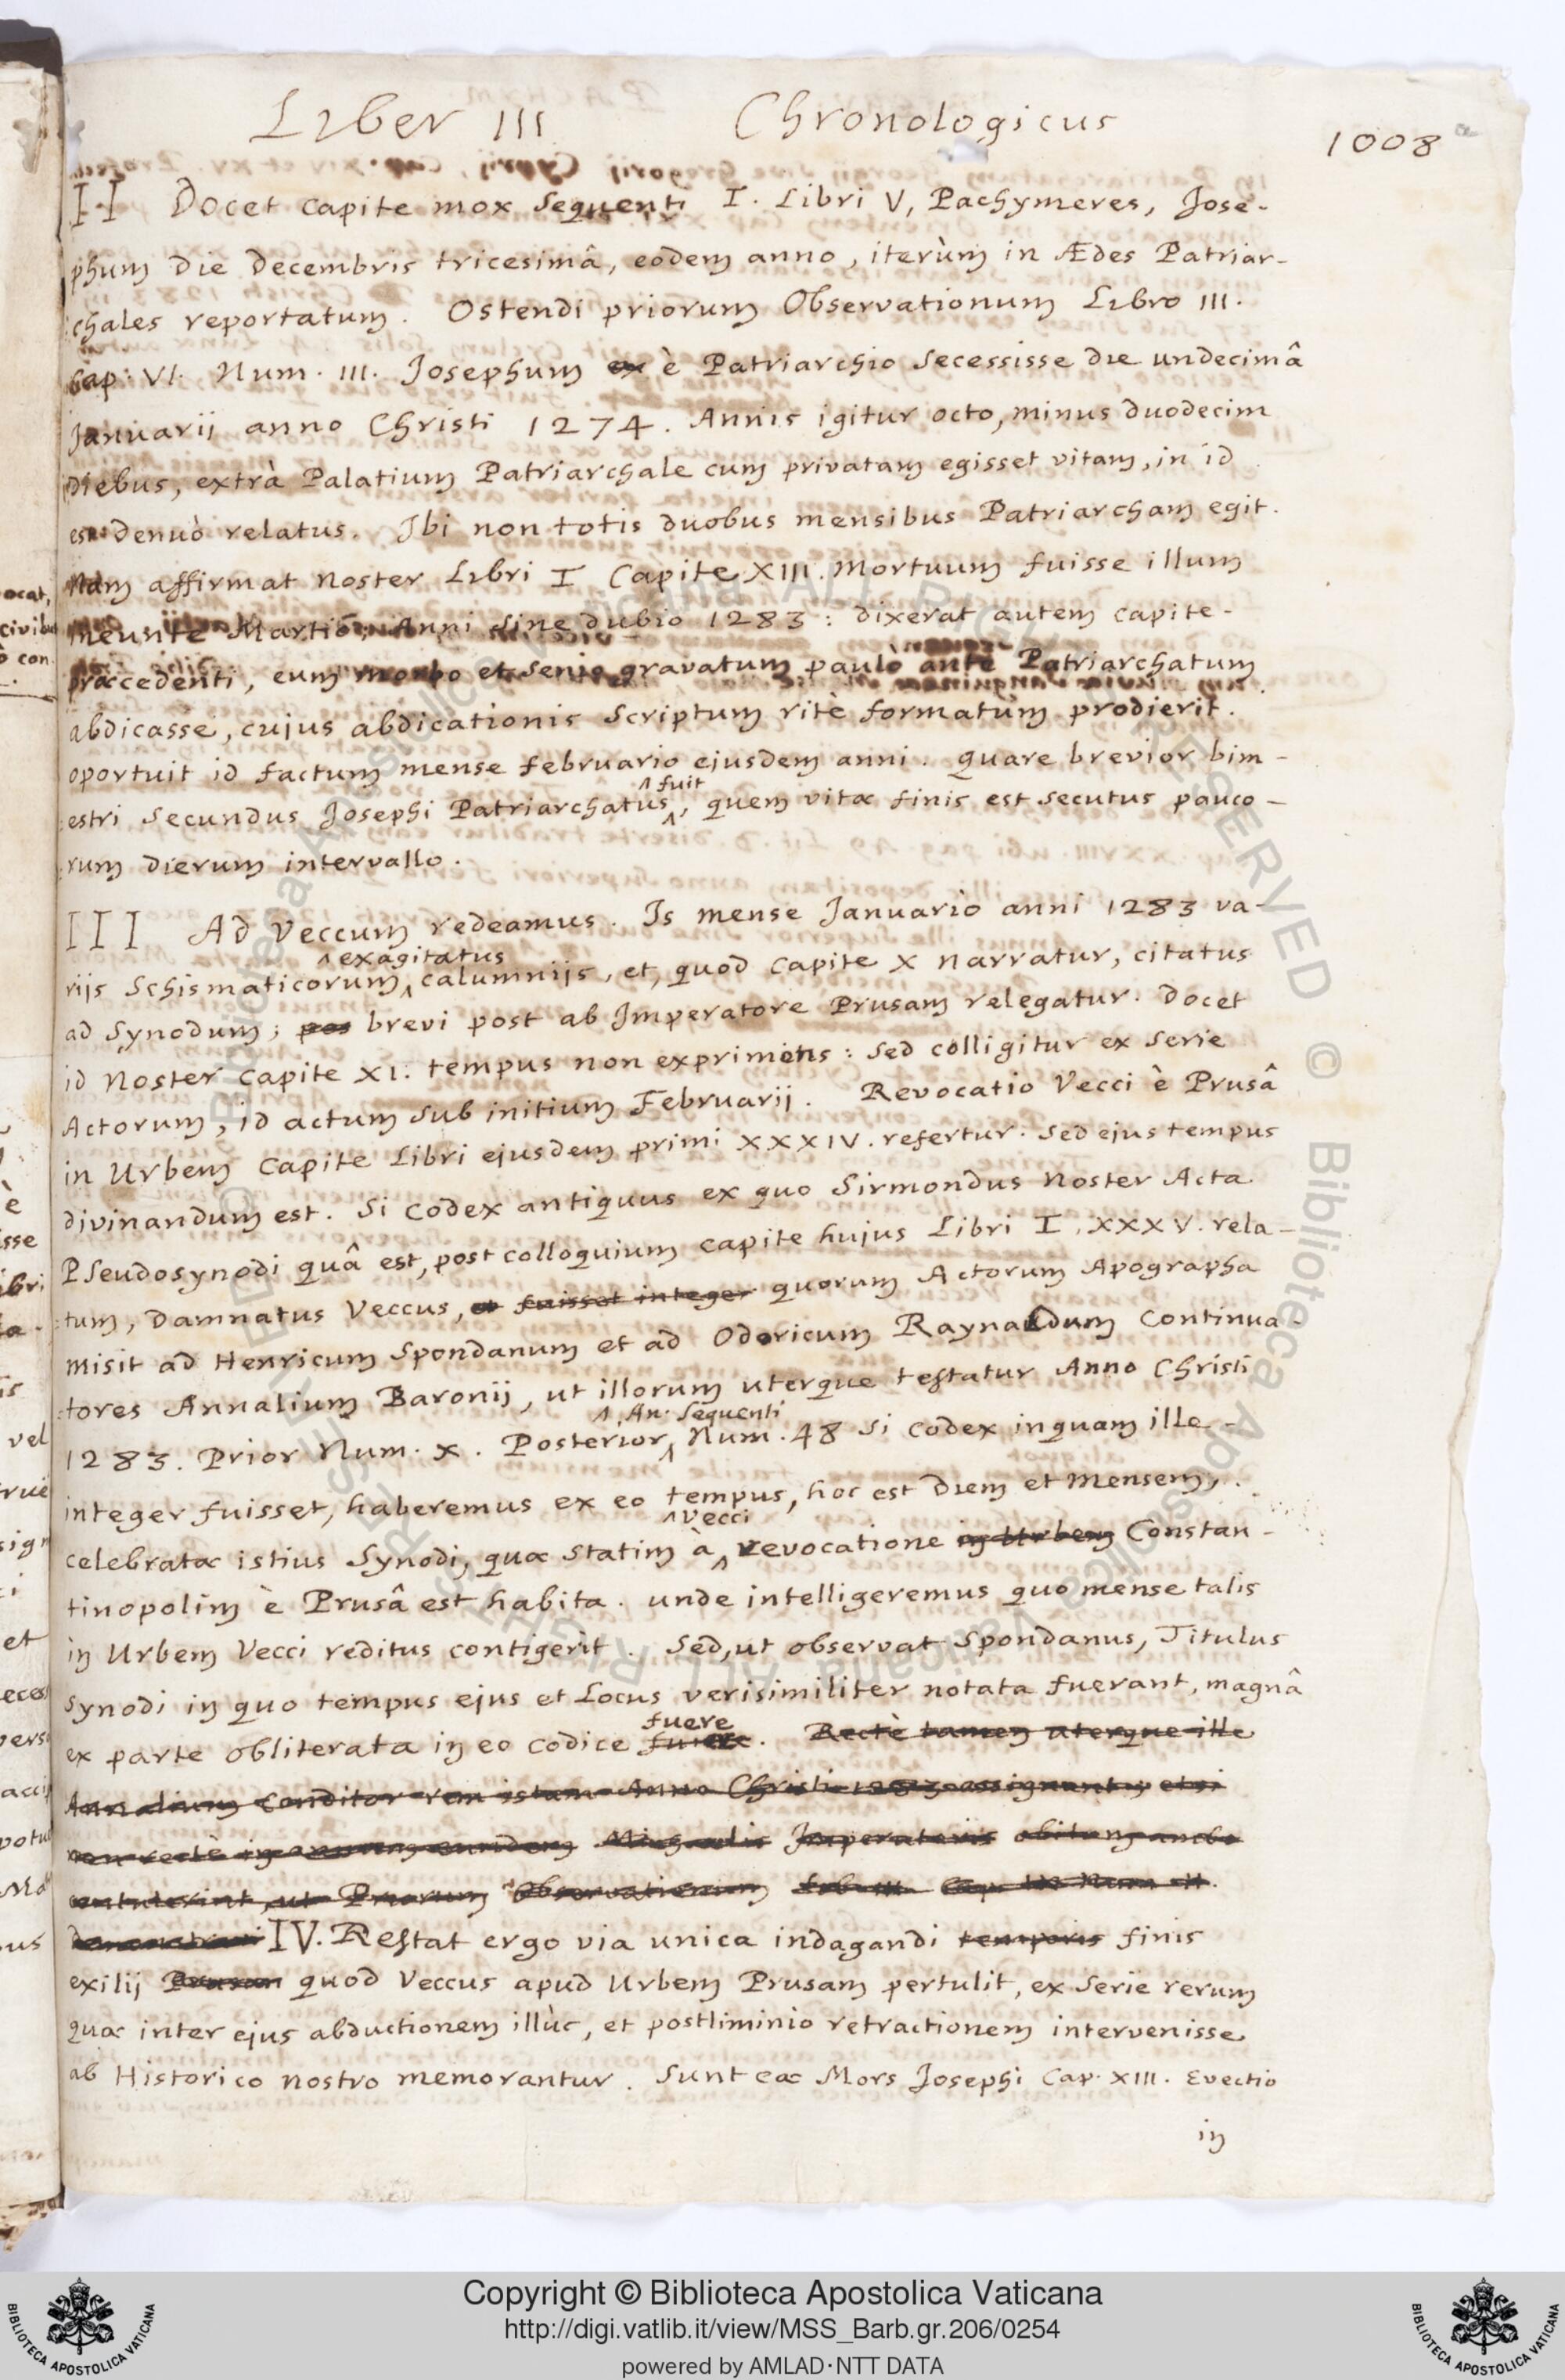 Liber III Chronologicus 1008
II Docet capite mox sequenti I. Libri V, Pachymeres, Jose-
phum die Decembris tricesimâ, eodem anno, iterùm in Ædes Patriar-
:chales reportatum. Ostendi priorum Observationum Libro III.
Cap: VI. Num. III. Josephum ex è Patriarchio Secessisse die undecimâ
Januarij anno Christi 1274. Annis igitur octo, minus duodecim
diebus, extrà Palatium Patriarchale cum privatam egisset vitam, in id
est denuò relatus. Ibi non totis duobus mensibus Patriarcham egit.
Nam affirmat noster Libri I Capite XIII. Mortuum fuisse illum
ineunte Martio: Anni sine dubio 1283: dixerat autem capite
præcedenti, eum morbo et senio gravatum paulò ante Patriarchatum
abdicasse, cujus abdicationis scriptum ritè formatum prodierit.
oportuit id factum mense februario ejusdem anni. quare brevior bim-
:estri secundus Josephi Patriarchatus ^fuit, quem vitæ finis est secutus pauco-
:rum dierum intervallo.
III Ad Veccum redeamus. Is mense Januario anni 1283 va-
rijs Schismaticorum ^exagitatus calumnijs, et, quod capite X narratur, citatus
ad Synodum; pos brevi post ab Imperatore Prusam relegatur. Docet
id Noster capite XI. tempus non exprimens: sed colligitur ex serie
Actorum, id actum sub initium Februarij. Revocatio Vecci è Prusâ
in Urbem capite Libri ejusdem primi XXXIV. refertur. sed ejus tempus
divinandum est. Si codex antiquus ex quo Sirmondus noster Acta
Pseudosynodi quâ est, post colloquium capite hujus Libri I. XXXV. rela-
:tum, damnatus Veccus, et fuisset integer quorum Actorum Apographa
misit ad Henricum Spondanum et ad Odoricum Raynaldum Continua-
:tores Annalium Baronij, ut illorum uterque testatur Anno Christi
1283. Prior Num. X. Posterior ^An. sequenti Num. 48 si codex inquam ille
integer fuisset, haberemus ex eo tempus, hoc est diem et mensem,
celebratæ istius Synodi, quæ statim à ^Vecci revocatione in Urbem Constan-
tinopolim è Prusâ est habita. unde intelligeremus quo mense talis
in Urbem Vecci reditus contigerit. Sed, ut observat Spondanus, Titulus
synodi in quo tempus ejus et Locus verisimiliter notata fuerant, magnâ
ex parte obliterata in eo codice fuere. Rectè tamen uterque ille
Annalium Conditor rem istam Anno Christi 1283 assignant, etsi
non rectè in annum eundem Michaelis Imperatoris obitum ambo
contulerint, ut Priorum Observationum
IV. Restat ergo via unica indagandi temporis finis
exilij Prusam quod Veccus apud Urbem Prusam pertulit, ex serie rerum
quæ inter ejus abductionem illùc, et postliminio retractionem intervenisse
ab Historico nostro memorantur. Sunt eæ Mors Josephi Cap. XIII. Evectio
in
Copyright © Biblioteca Apostolica Vaticana
http://digi.vatlib.it/view/MSS_Barb.gr.206/0254
powered by AMLAD·NTT DATA
BIBLIOTECA APOSTOLICA VATICANA
BIBLIOTECA APOSTOLICA VATICANA